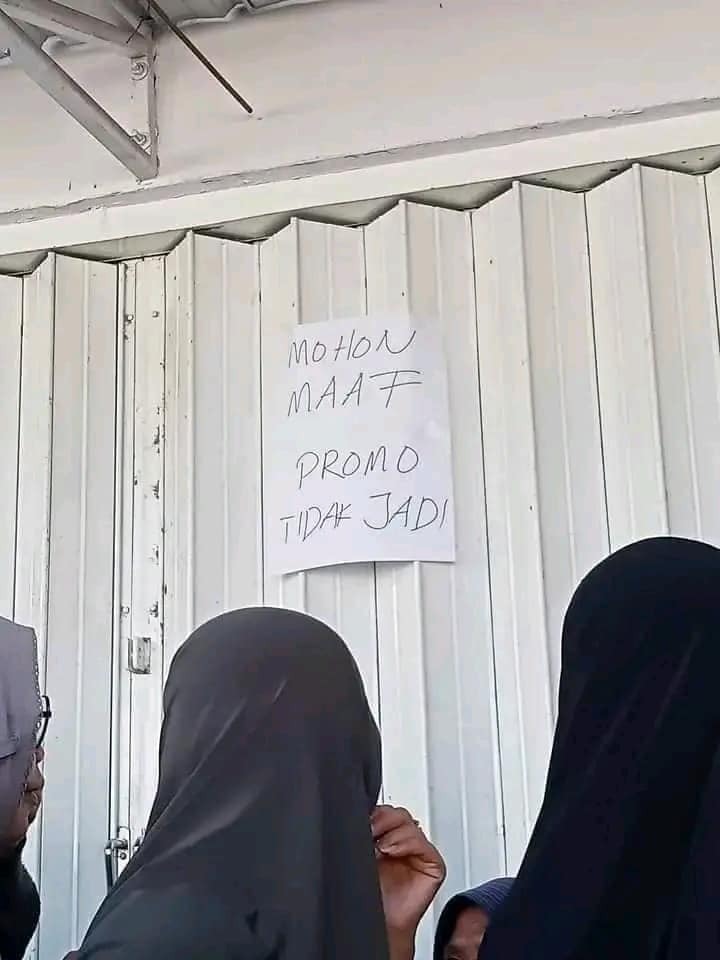 MOHON
MAAF
PROMO
TIDAK JADI